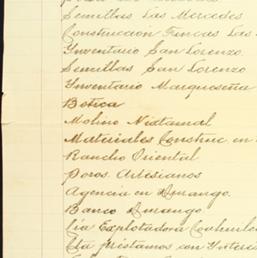 Semillas Las Mercedes
Construccion Fincas Las
Inventario San Lorenzo
Semillas San Lorenzo
Inventario Marqueseña
Botica
Molino Nixtamal
Materiales Construc en
Rancho Oriental
Pozos Artesianos
Agencia en Durango.
Banco Durango.
Cia Explotadora Coahuile
Cta prestamos con Interes